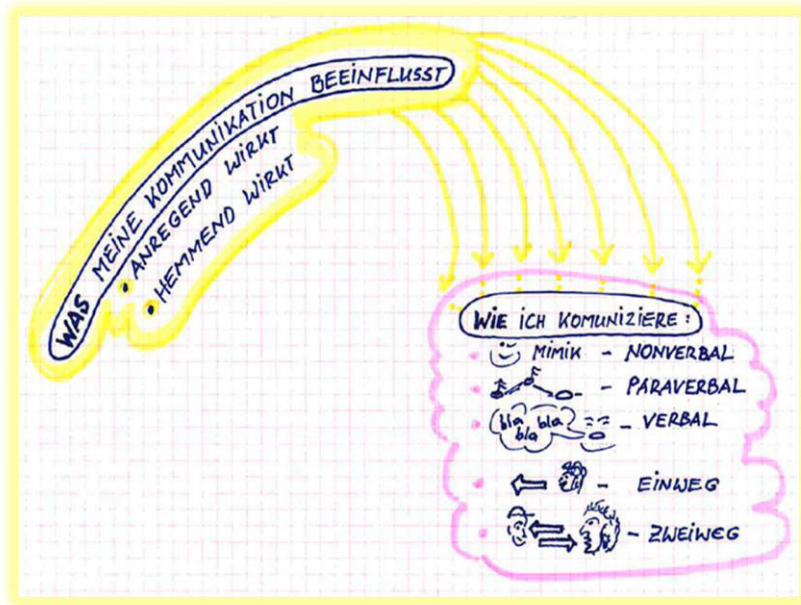 WAS MEINE KOMMUNIKATION BEEINFLUSST
• ANREGEND WIRKT
• HEMMEND WIRKT
WIE ICH KOMUNIZIERE:
• MIMIK - NONVERBAL
• - PARAVERBAL
• bla bla bla bla - VERBAL
• - EINWEG
• - ZWEIWEG